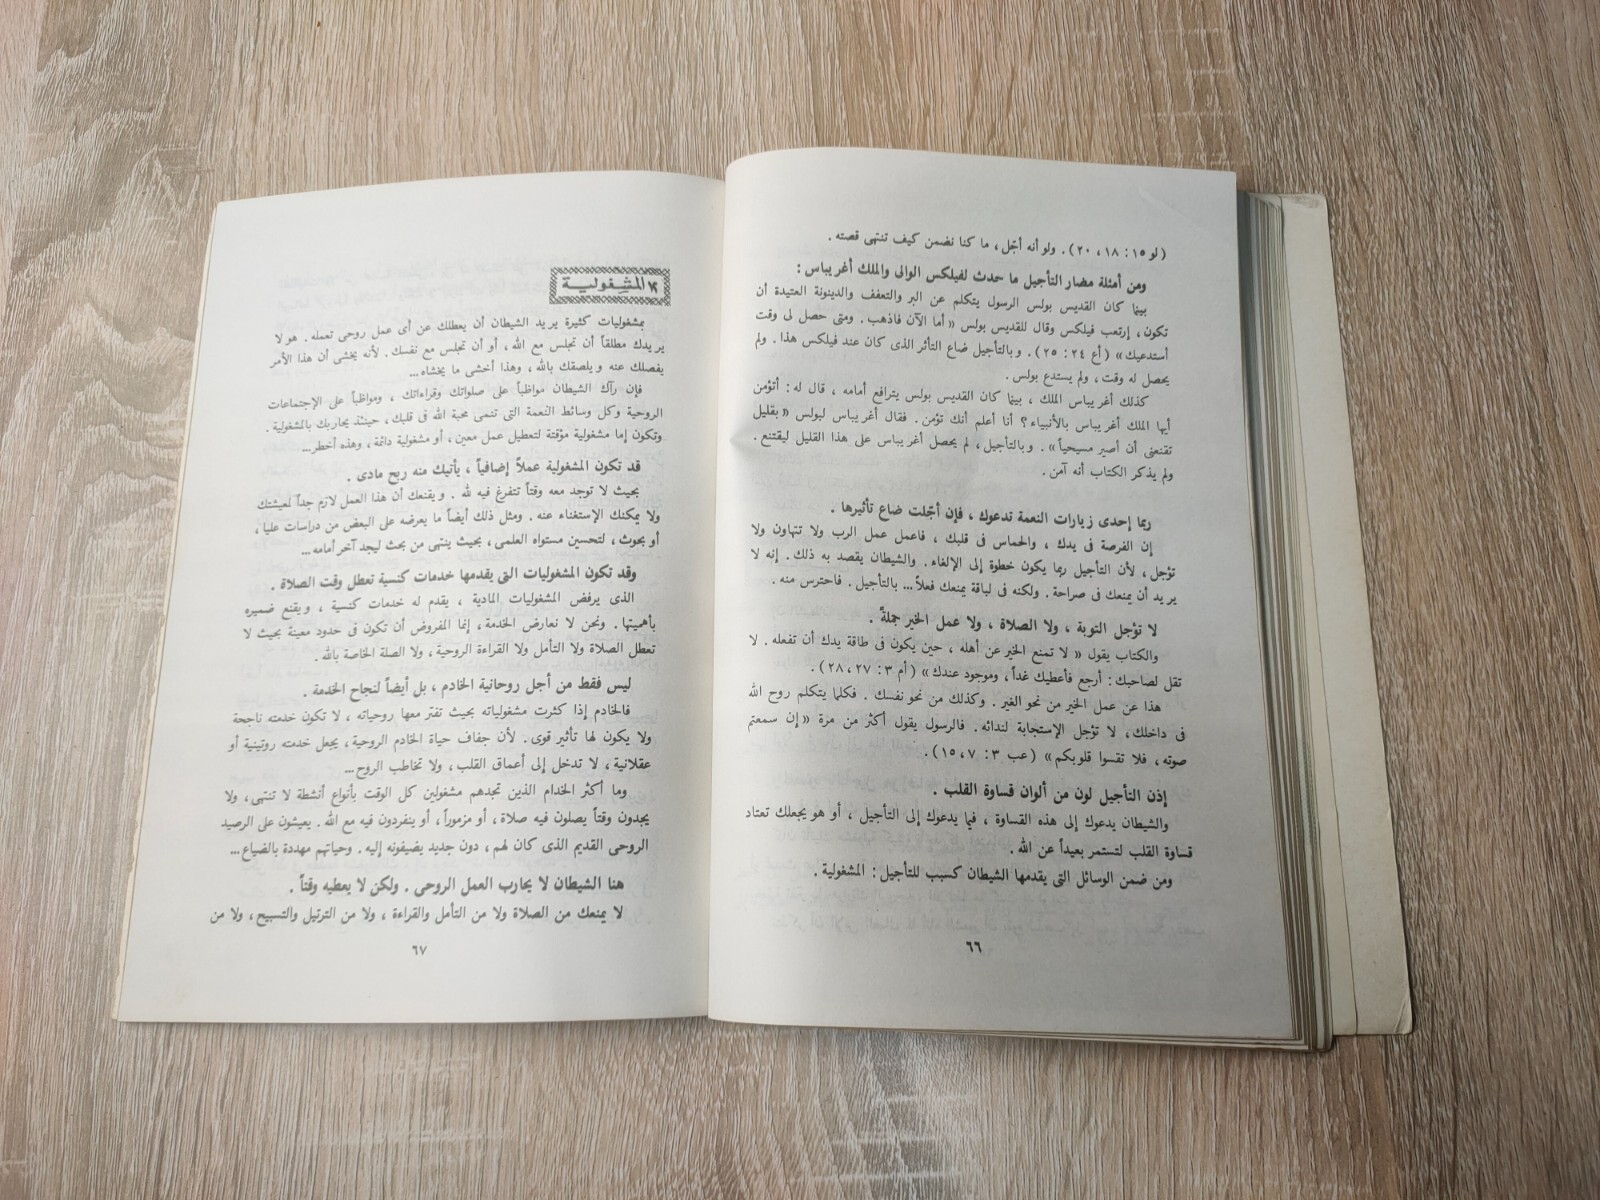 (لو ١٥ : ١٨ ، ٢٠) . ولو أنه أجّل ، ما كنا نضمن كيف تنتهى قصته .
ومن أمثلة مضار التأجيل ما حدث لفيلكس الوالى والملك أغريباس :
بينما كان القديس بولس الرسول يتكلم عن البر والتعفف والدينونة العتيدة أن
تكون ، إرتعب فيلكس وقال للقديس بولس « أما الآن فاذهب . ومتى حصل لى وقت
أستدعيك » (أع ٢٤ : ٢٥) . وبالتأجيل ضاع التأثر الذى كان عند فيلكس هذا . ولم
يحصل له وقت ، ولم يستدع بولس .
كذلك أغريباس الملك ، بينما كان القديس بولس يترافع أمامه ، قال له : أتؤمن
أيها الملك أغريباس بالأنبياء ؟ أنا أعلم أنك تؤمن . فقال أغريباس لبولس « بقليل
تقنعنى أن أصير مسيحياً » . وبالتأجيل ، لم يحصل أغريباس على هذا القليل ليقتنع .
ولم يذكر الكتاب أنه آمن .
ربما إحدى زيارات النعمة تدعوك ، فإن أجّلت ضاع تأثيرها .
إن الفرصة فى يدك ، والحماس فى قلبك ، فاعمل عمل الرب ولا تتهاون ولا
تؤجل ، لأن التأجيل ربما يكون خطوة إلى الإلغاء . والشيطان يقصد به ذلك . إنه لا
يريد أن يمنعك فى صراحة . ولكنه فى لباقة يمنعك فعلاً ... بالتأجيل . فاحترس منه .
لا تؤجل التوبة ، ولا الصلاة ، ولا عمل الخير جملةً .
والكتاب يقول « لا تمنع الخير عن أهله ، حين يكون فى طاقة يدك أن تفعله . لا
تقل لصاحبك : أرجع فأعطيك غداً ، وموجود عندك » (أم ٣ : ٢٧ ، ٢٨) .
هذا عن عمل الخير من نحو الغير . وكذلك من نحو نفسك . فكلما يتكلم روح الله
فى داخلك ، لا تؤجل الإستجابة لندائه . فالرسول يقول أكثر من مرة « إن سمعتم
صوته ، فلا تقسوا قلوبكم » (عب ٣ : ٧ ، ١٥) .
إذن التأجيل لون من ألوان قساوة القلب .
والشيطان يدعوك إلى هذه القساوة ، فيما يدعوك إلى التأجيل ، أو هو يجعلك تعتاد
قساوة القلب لتستمر بعيداً عن الله .
ومن ضمن الوسائل التى يقدمها الشيطان كسبب للتأجيل : المشغولية .
٦٦
١٢ المشغولية
بمشغوليات كثيرة يريد الشيطان أن يعطلك عن أى عمل روحى تعمله . هو لا
يريدك مطلقاً أن تجلس مع الله ، أو أن تجلس مع نفسك . لأنه يخشى أن هذا الأمر
يفصلك عنه ويلصقك بالله ، وهذا أخشى ما يخشاه ...
فإن رآك الشيطان مواظباً على صلواتك وقراءاتك ، ومواظباً على الإجتماعات
الروحية وكل وسائط النعمة التى تنمى محبة الله فى قلبك ، حينئذ يحاربك بالمشغولية .
وتكون إما مشغولية مؤقتة لتعطيل عمل معين ، أو مشغولية دائمة ، وهذه أخطر ...
قد تكون المشغولية عملاً إضافياً ، يأتيك منه ربح مادى .
بحيث لا توجد معه وقتاً تتفرغ فيه لله . ويقنعك أن هذا العمل لازم جداً لمعيشتك
ولا يمكنك الإستغناء عنه . ومثل ذلك أيضاً ما يعرضه على البعض من دراسات عليا ،
أو بحوث ، لتحسين مستواه العلمى ، بحيث ينتهى من بحث ليجد آخر أمامه ...
وقد تكون المشغوليات التى يقدمها خدمات كنسية تعطل وقت الصلاة .
الذى يرفض المشغوليات المادية ، يقدم له خدمات كنسية ، ويقنع ضميره
بأهميتها . ونحن لا نعارض الخدمة ، إنما المفروض أن تكون فى حدود معينة بحيث لا
تعطل الصلاة ولا التأمل ولا القراءة الروحية ، ولا الصلة الخاصة بالله .
ليس فقط من أجل روحانية الخادم ، بل أيضاً لنجاح الخدمة .
فالخادم إذا كثرت مشغولياته بحيث تفتر معها روحياته ، لا تكون خدمته ناجحة
ولا يكون لها تأثير قوى . لأن جفاف حياة الخادم الروحية ، يجعل خدمته روتينية أو
عقلانية ، لا تدخل إلى أعماق القلب ، ولا تخاطب الروح ...
وما أكثر الخدام الذين تجدهم مشغولين كل الوقت بأنواع أنشطة لا تنتهى ، ولا
يجدون وقتاً يصلون فيه صلاة ، أو مزموراً ، أو ينفردون فيه مع الله . يعيشون على الرصيد
الروحى القديم الذى كان لهم ، دون جديد يضيفونه إليه . وحياتهم مهددة بالضياع ...
هنا الشيطان لا يحارب العمل الروحى . ولكن لا يعطيه وقتاً .
لا يمنعك من الصلاة ولا من التأمل والقراءة ، ولا من الترتيل والتسبيح ، ولا من
٦٧